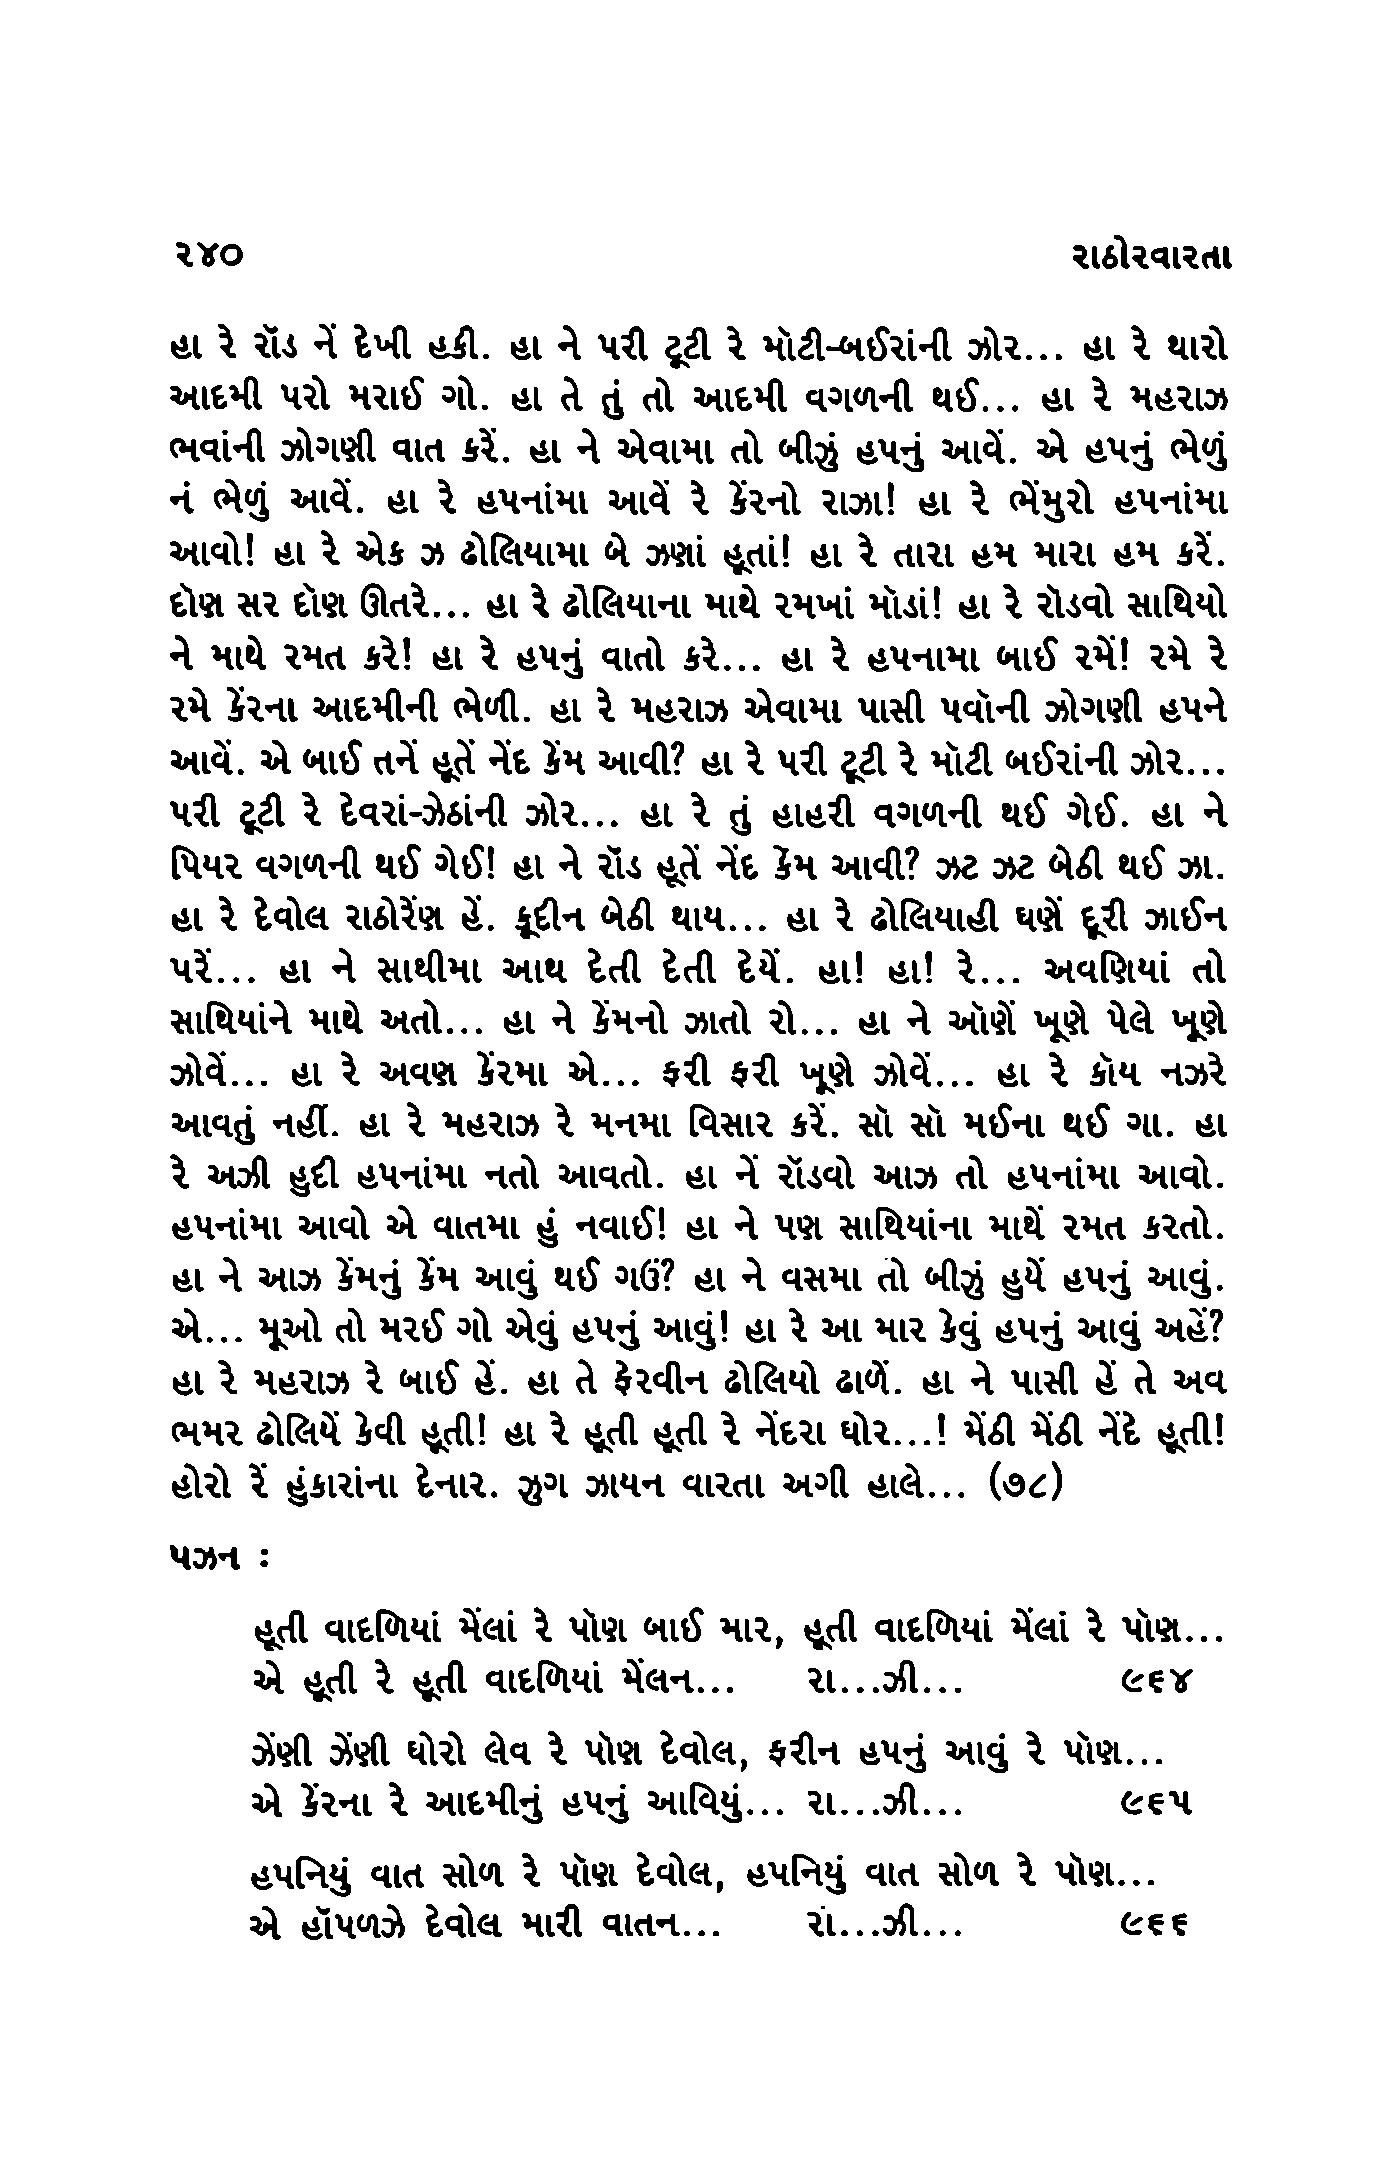 ૨૪૦ રાઠોરવારતા
હા રે રૉડ નેં દેખી હકી. હા ને પરી ટૂટી રે મૉટી-બઈરાંની ઝોર... હા રે થારો
આદમી પરો મરાઈ ગો. હા તે તું તો આદમી વગળની થઈ... હા રે મહરાઝ
ભવાંની ઝોગણી વાત કરેં. હા ને એવામા તો બીઝું હપનું આવેં. એ હપનું ભેળું
નં ભેળું આવેં. હા રે હપનાંમા આવેં રે કેંરનો રાઝા! હા રે ભેંમુરો હપનાંમા
આવો! હા રે એક ઝ ઢોલિયામા બે ઝણાં હૂતાં! હા રે તારા હમ મારા હમ કરેં.
દૉણ સર દૉણ ઊતરે... હા રે ઢોલિયાના માથે રમખાં મૉડાં! હા રે રૉડવો સાથિયો
ને માથે રમત કરે! હા રે હપનું વાતો કરે... હા રે હપનામા બાઈ રમેં! રમે રે
રમે કેંરના આદમીની ભેળી. હા રે મહરાઝ એવામા પાસી પવૉની ઝોગણી હપને
આવેં. એ બાઈ તનેં હૂતેં નેંદ કેંમ આવી? હા રે પરી ટૂટી રે મૉટી બઈરાંની ઝોર...
પરી ટૂટી રે દેવરાં-ઝેઠાંની ઝોર... હા રે તું હાહરી વગળની થઈ ગેઈ. હા ને
પિયર વગળની થઈ ગેઈ! હા ને રૉડ હૂતેં નેંદ કેંમ આવી? ઝટ ઝટ બેઠી થઈ ઝા.
હા રે દેવોલ રાઠોરેંણ હેં. કૂદીન બેઠી થાય... હા રે ઢોલિયાહી ઘણેં દૂરી ઝાઈન
પરેં... હા ને સાથીમા આથ દેતી દેતી દેયેં. હા! હા! રે... અવણિયાં તો
સાથિયાંને માથે અતો... હા ને કેંમનો ઝાતો રો... હા ને ઑણેં ખૂણે પેલે ખૂણે
ઝોવેં... હા રે અવણ કેંરમા એ... ફરી ફરી ખૂણે ઝોવેં... હા રે કૉય નઝરે
આવતું નહીં. હા રે મહરાઝ રે મનમા વિસાર કરેં. સૉ સૉ મઈના થઈ ગા. હા
રે અઝી હુદી હપનાંમા નતો આવતો. હા નેં રૉડવો આઝ તો હપનાંમા આવો.
હપનાંમા આવો એ વાતમા હું નવાઈ! હા ને પણ સાથિયાંના માથેં રમત કરતો.
હા ને આઝ કેંમનું કેંમ આવું થઈ ગઉં? હા ને વસમા તો બીઝું હુયેં હપનું આવું.
એ... મૂઓ તો મરઈ ગો એવું હપનું આવું! હા રે આ માર કેવું હપનું આવું અહેં?
હા રે મહરાઝ રે બાઈ હેં. હા તે ફેરવીન ઢોલિયો ઢાળેં. હા ને પાસી હેં તે અવ
ભમર ઢોલિયેં કેવી હૂતી! હા રે હૂતી હૂતી રે નેંદરા ઘોર...! મેંઠી મેંઠી નેંદે હૂતી!
હોરો રેં હુંકારાંના દેનાર. ઝુગ ઝાયન વારતા અગી હાલે... (૭૮)
પઝન :
હૂતી વાદળિયાં મેંલાં રે પૉણ બાઈ માર, હૂતી વાદળિયાં મેંલાં રે પૉણ...
એ હૂતી રે હૂતી વાદળિયાં મેંલન... રા...ઝી... ૯૬૪
ઝેંણી ઝેંણી ઘોરો લેવ રે પૉણ દેવોલ, ફરીન હપનું આવું રે પૉણ...
એ કેંરના રે આદમીનું હપનું આવિયું... રા...ઝી... ૯૬૫
હપનિયું વાત સોળ રે પૉણ દેવોલ, હપનિયું વાત સોળ રે પૉણ...
એ હૉપળઝે દેવોલ મારી વાતન... રાં...ઝી... ૯૬૬